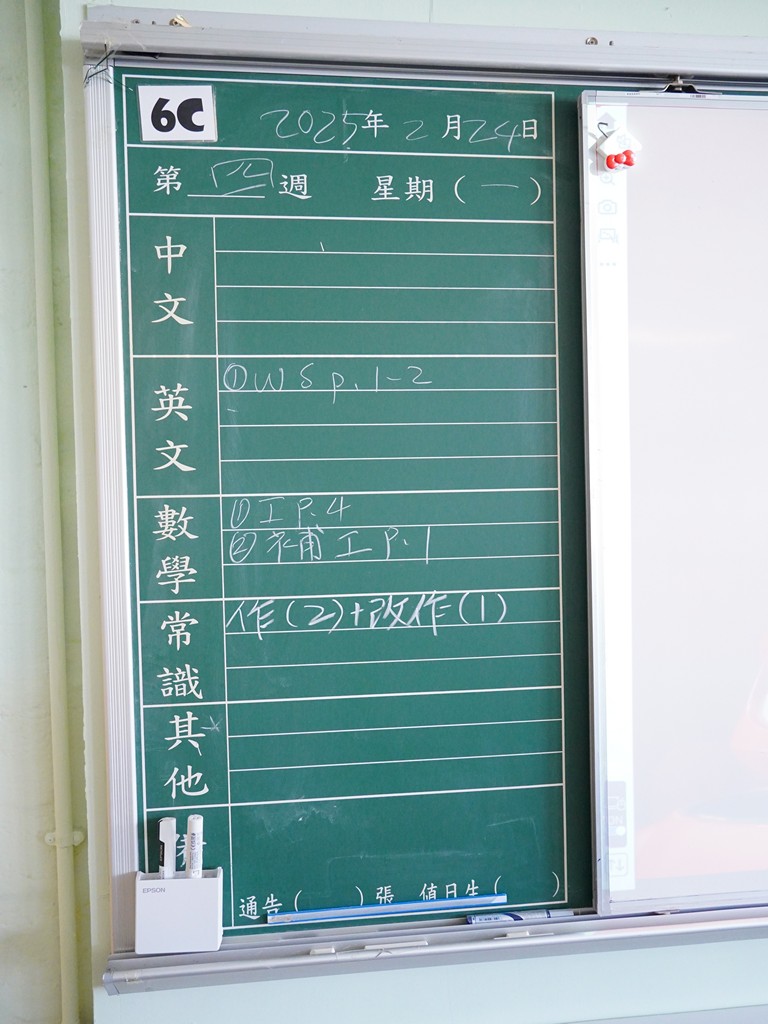 6C
2025年2月24日
第四週 星期(一)
中文
英文
① WS p.1-2
數學
① 工 P.4
② 補工 P.1
常識
作(2)+改作(1)
其他
EPSON
通告( )張 值日生( )